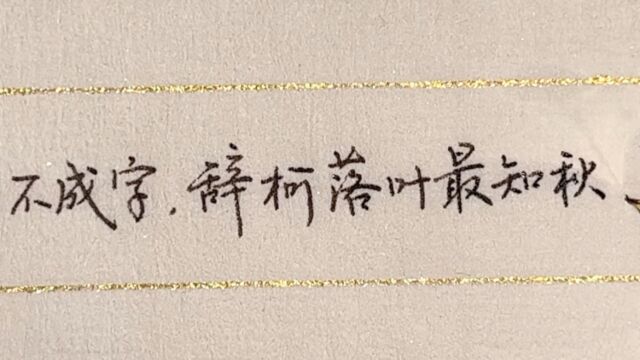 不成字.辞柯落叶最知秋